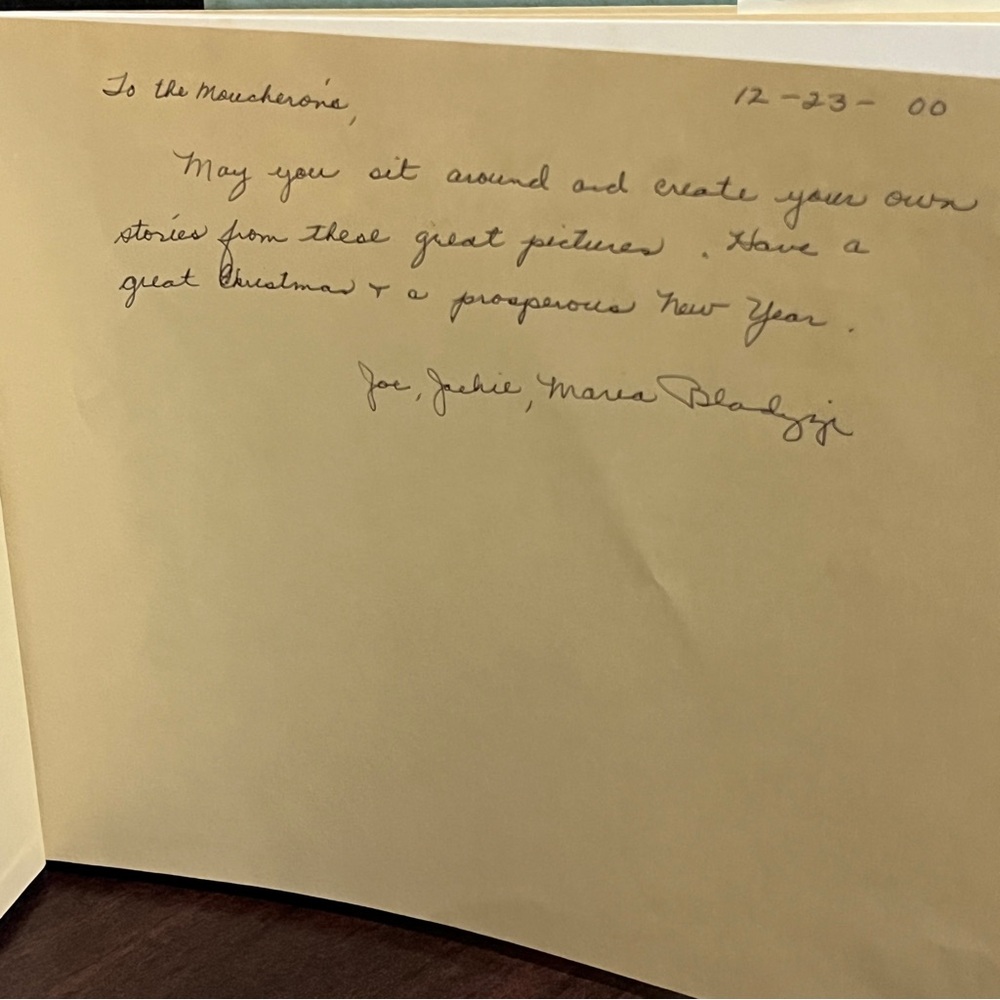 To the Moucheron's, 12-23-00
May you sit around and create your own
stories from these great pictures. Have a
great Christmas + a prosperous New Year.
Joe, Jackie, Maria